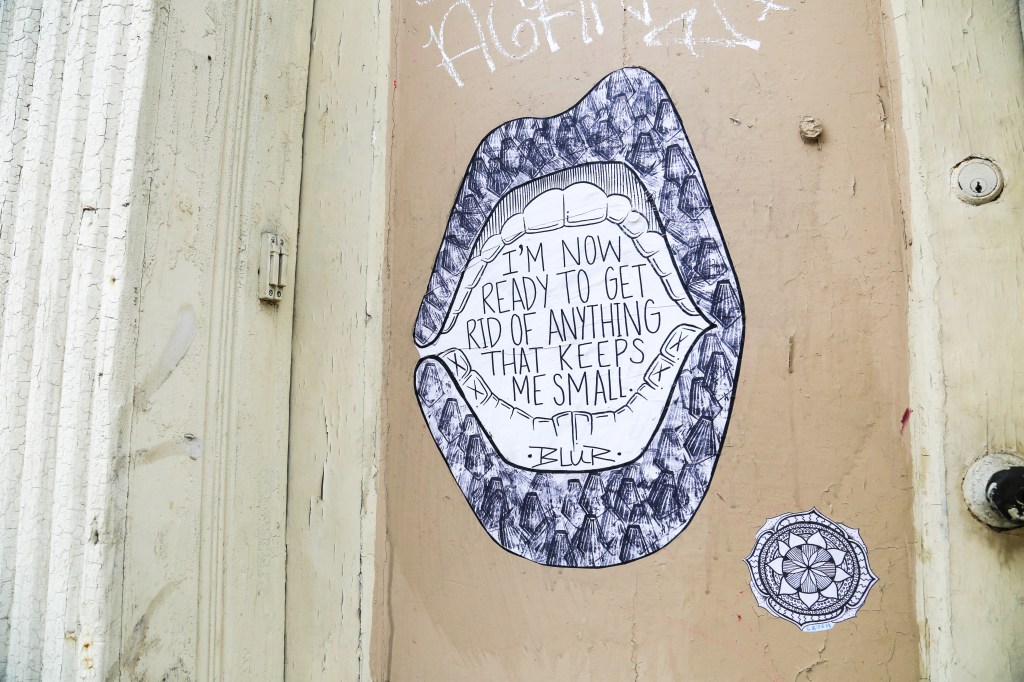 AGAIN
I'M NOW
READY TO GET
RID OF ANYTHING
THAT KEEPS
ME SMALL.
·BLUR·